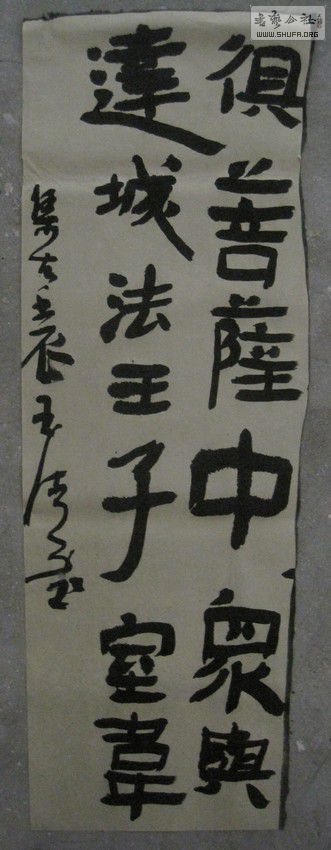 書藝公社
WWW.SHUFA.ORG
俱菩薩中眾與
達城法王子室韋
集古壬辰玉